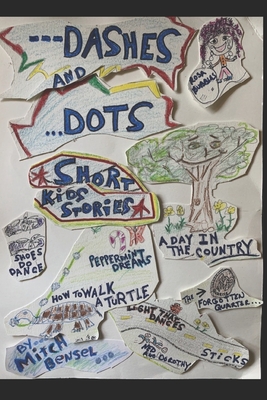 ---DASHES
AND
...DOTS
ROSA
SHORT
KIDS
STORIES
A DAY IN
THE COUNTRY
SHOES
DO
DANCE
PEPPERMINT
DREAMS
HOW TO WALK
A TURTLE
THE
FORGOTTEN
QUARTER...
LIGHT THAT
DANCES
AND
DOROTHY
STICKS
BY: MITCH
BENSEL...